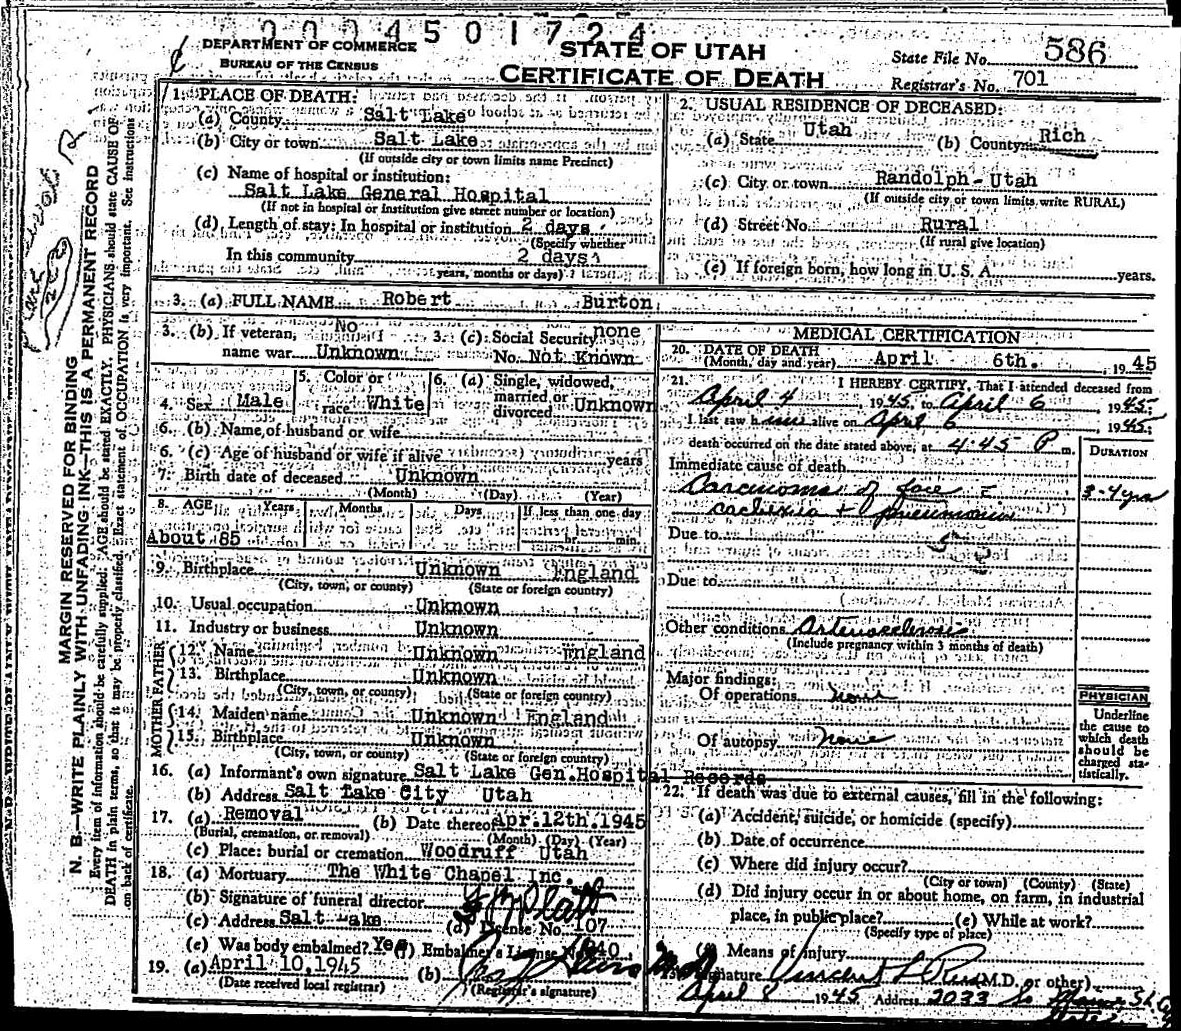 2 0 0 4 5 0 1 7 2 4
DEPARTMENT OF COMMERCE
BUREAU OF THE CENSUS
STATE OF UTAH
CERTIFICATE OF DEATH
State File No. 586
Registrar's No. 701
MARGIN RESERVED FOR BINDING
N. B.—WRITE PLAINLY WITH UNFADING INK—THIS IS A PERMANENT RECORD
Every item of information should be carefully supplied. AGE should be stated EXACTLY. PHYSICIANS should state CAUSE OF
DEATH in plain terms, so that it may be properly classified. Exact statement of OCCUPATION is very important. See instructions
on back of certificate.
1. PLACE OF DEATH:
(a) County Salt Lake
(b) City or town Salt Lake
(If outside city or town limits name Precinct)
(c) Name of hospital or institution:
Salt Lake General Hospital
(If not in hospital or institution give street number or location)
(d) Length of stay: In hospital or institution 2 days
(Specify whether
In this community 2 days
years, months or days)
2. USUAL RESIDENCE OF DECEASED:
(a) State Utah (b) County Rich
(c) City or town Randolph - Utah
(If outside city or town limits write RURAL)
(d) Street No. Rural
(If rural give location)
(e) If foreign born, how long in U. S. A. years.
3. (a) FULL NAME Robert Burton
3. (b) If veteran, No
name war Unknown
3. (c) Social Security none
No. Not Known
4. Sex Male
5. Color or
race White
6. (a) Single, widowed,
married or
divorced Unknown
6. (b) Name of husband or wife
6. (c) Age of husband or wife if alive years
7. Birth date of deceased Unknown
(Month) (Day) (Year)
8. AGE Years Months Days If less than one day
About 85 hr. min.
9. Birthplace Unknown England
(City, town, or county) (State or foreign country)
10. Usual occupation Unknown
11. Industry or business Unknown
FATHER
12. Name Unknown England
13. Birthplace Unknown
(City, town, or county) (State or foreign country)
MOTHER
14. Maiden name Unknown England
15. Birthplace Unknown
(City, town, or county) (State or foreign country)
16. (a) Informant's own signature Salt Lake Gen. Hospital Records
(b) Address Salt Lake City Utah
17. (a) Removal (b) Date thereof Apr. 12th, 1945
(Burial, cremation, or removal) (Month) (Day) (Year)
(c) Place: burial or cremation Woodruff Utah
18. (a) Mortuary The White Chapel Inc.
(b) Signature of funeral director
(c) Address Salt Lake (d) License No. 107
(e) Was body embalmed? Yes (f) Embalmer's License No.
19. (a) April 10, 1945 (b)
(Date received local registrar) (Registrar's signature)
MEDICAL CERTIFICATION
20. DATE OF DEATH
(Month, day and year) April 6th. , 1945
21. I HEREBY CERTIFY, That I attended deceased from
April 4 1945, to April 6 , 1945;
I last saw him alive on April 6 , 1945;
death occurred on the date stated above, at 4:45 P m.
DURATION
Immediate cause of death
Carcinoma of face c 3-4 yrs
cachexia + pneumonia
Due to
Due to
Other conditions Arteriosclerosis
(Include pregnancy within 3 months of death)
Major findings:
Of operations none
Of autopsy None
PHYSICIAN
Underline
the cause to
which death
should be
charged sta-
tistically.
22. If death was due to external causes, fill in the following:
(a) Accident, suicide, or homicide (specify)
(b) Date of occurrence
(c) Where did injury occur?
(City or town) (County) (State)
(d) Did injury occur in or about home, on farm, in industrial
place, in public place? (e) While at work?
(Specify type of place)
(f) Means of injury
Signature Vincent L Rees M.D. or other)
April 8 1945 Address 2033 So